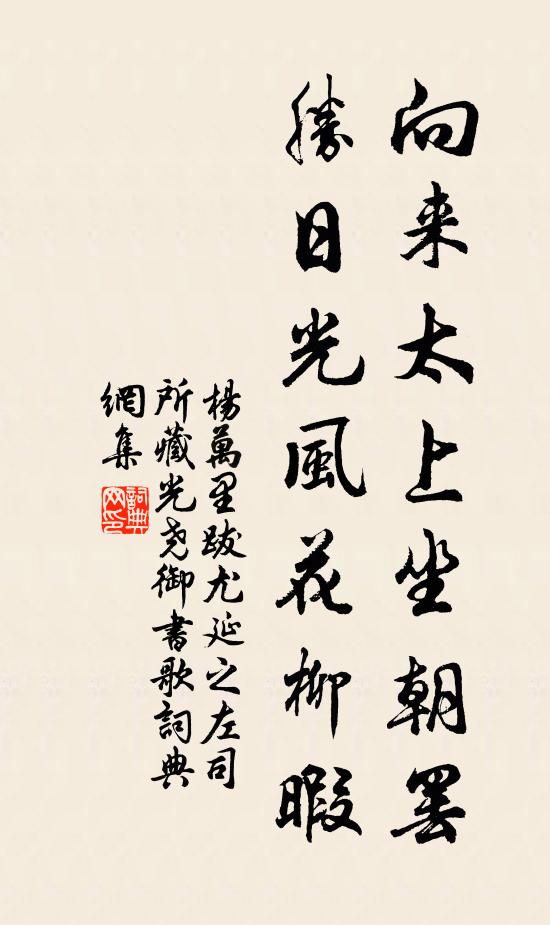 向来太上坐朝罢
勝日光風花柳暇
楊萬里跋尤延之左司
所藏光尧御書歌詞典
網集
詞典网印